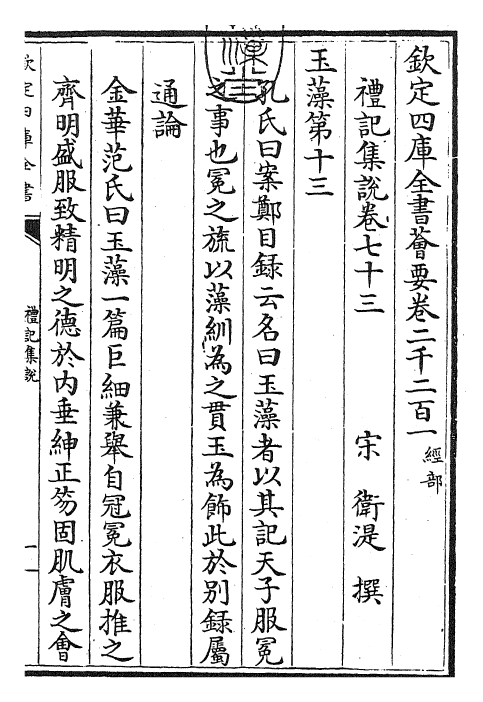 欽定四庫全書薈要卷二千二百一
經部
禮記集說卷七十三
宋 衛湜 撰
玉藻第十三
孔氏曰案鄭目録云名曰玉藻者以其記天子服冕
之事也冕之旒以藻紃為之貫玉為飾此於別録屬
通論
金華范氏曰玉藻一篇巨細兼舉自冠冕衣服推之
齊明盛服致精明之德於内垂紳正笏固肌膚之會
欽定四庫全書
禮記集說
一